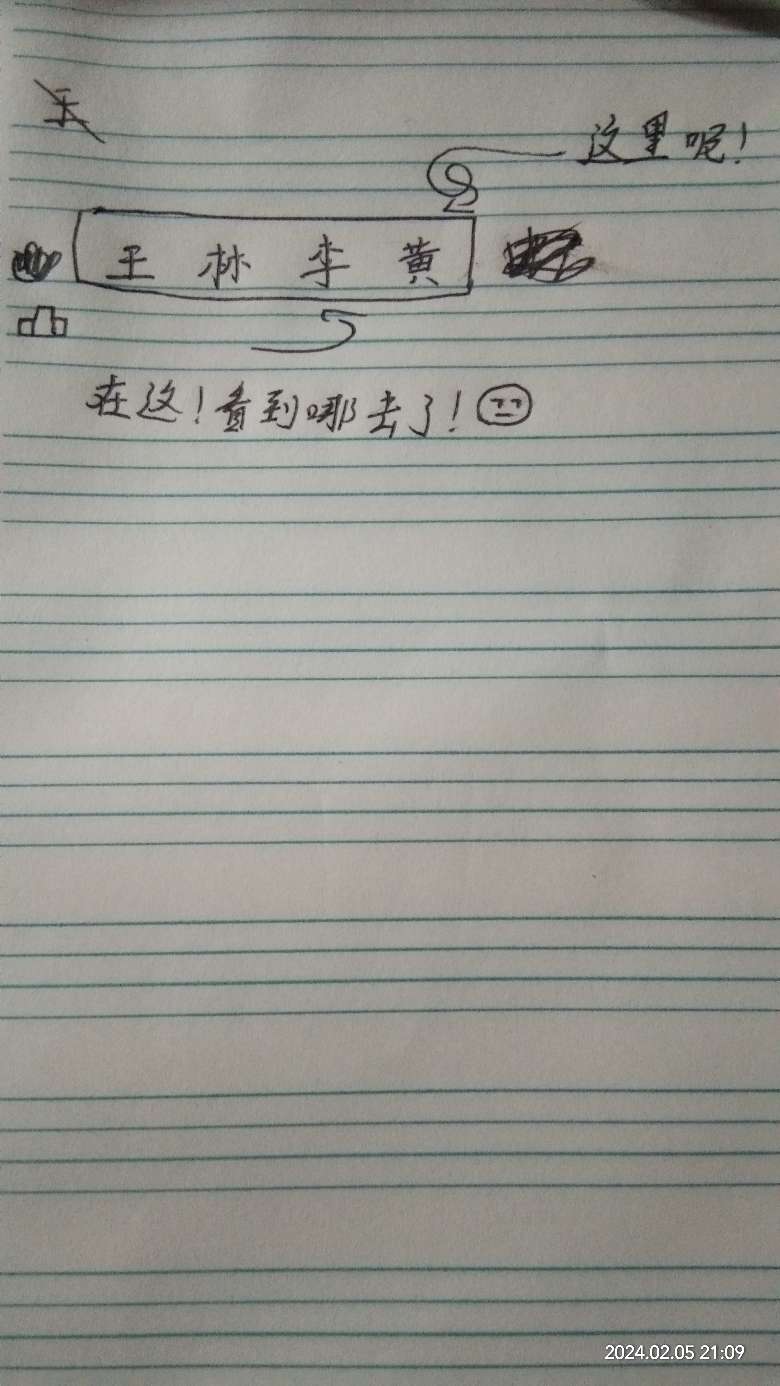 这里呢!
王 林 李 黄
在这!看到哪去了!
2024.02.05 21:09